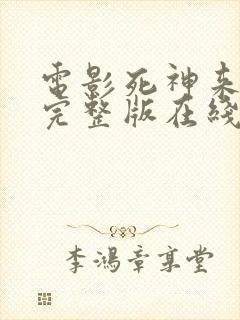 電影死神来
完整版在綫
李鴻章享堂